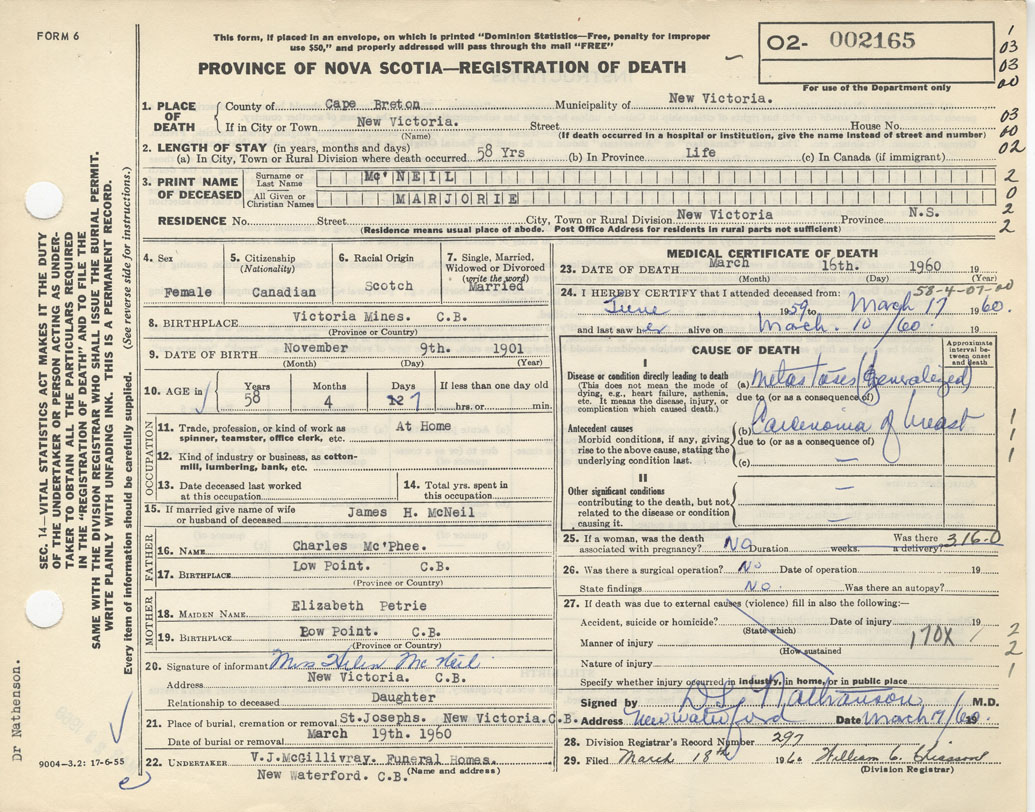 FORM 6
This form, if placed in an envelope, on which is printed "Dominion Statistics—Free, penalty for improper
use $50," and properly addressed will pass through the mail "FREE"
PROVINCE OF NOVA SCOTIA—REGISTRATION OF DEATH
O2- 002165
For use of the Department only
1
03
03
00
03
00
02
2
0
2
2
1. PLACE OF DEATH
County of Cape Breton Municipality of New Victoria.
If in City or Town New Victoria. Street House No.
(Name) (If death occurred in a hospital or institution, give the name instead of street and number)
2. LENGTH OF STAY (in years, months and days)
(a) In City, Town or Rural Division where death occurred 58 Yrs (b) In Province Life (c) In Canada (if immigrant)
3. PRINT NAME OF DECEASED
Surname or Last Name Mc'NEIL
All Given or Christian Names MARJORIE
RESIDENCE No. Street. City, Town or Rural Division New Victoria Province N.S.
(Residence means usual place of abode. Post Office Address for residents in rural parts not sufficient)
4. Sex Female
5. Citizenship (Nationality) Canadian
6. Racial Origin Scotch
7. Single, Married, Widowed or Divorced (write the word) Married
8. BIRTHPLACE Victoria Mines. C.B.
(Province or Country)
9. DATE OF BIRTH November 9th. 1901
(Month) (Day) (Year)
10. AGE in Years 58 Months 4 Days 7 If less than one day old hrs. or min.
OCCUPATION
11. Trade, profession, or kind of work as spinner, teamster, office clerk, etc. At Home
12. Kind of industry or business, as cotton-mill, lumbering, bank, etc.
13. Date deceased last worked at this occupation
14. Total yrs. spent in this occupation
15. If married give name of wife or husband of deceased James H. McNeil
FATHER
16. NAME Charles Mc'Phee.
17. BIRTHPLACE Low Point. C.B.
(Province or Country)
MOTHER
18. MAIDEN NAME Elizabeth Petrie
19. BIRTHPLACE Low Point. C.B.
(Province or Country)
20. Signature of informant Miss Helen McNeil
Address New Victoria. C.B.
Relationship to deceased Daughter
21. Place of burial, cremation or removal St.Josephs. New Victoria.C.B.
Date of burial or removal March 19th. 1960
22. UNDERTAKER V.J.McGillivray. Funeral Homes.
New Waterford. C.B. (Name and address)
MEDICAL CERTIFICATE OF DEATH
23. DATE OF DEATH March 16th. 1960 19
(Month) (Day) (Year)
58-4-07-00
24. I HEREBY CERTIFY that I attended deceased from:
June 1959 to March 17 1960.
and last saw her alive on March. 10/60. 19
CAUSE OF DEATH
Approximate interval between onset and death
I
Disease or condition directly leading to death
(This does not mean the mode of dying, e.g., heart failure, asthenia, etc. It means the disease, injury, or complication which caused death.)
(a) Metastases (Generalized)
due to (or as a consequence of)
Antecedent causes
Morbid conditions, if any, giving rise to the above cause, stating the underlying condition last.
(b) Carcenomia of breast
due to (or as a consequence of)
(c) —
1
1
1
II
Other significant conditions
contributing to the death, but not related to the disease or condition causing it.
—
—
25. If a woman, was the death associated with pregnancy? NO Duration weeks. Was there a delivery? 316-0
26. Was there a surgical operation? No Date of operation 19
State findings No. Was there an autopsy?
27. If death was due to external causes (violence) fill in also the following:—
Accident, suicide or homicide? Date of injury 19
(State which)
Manner of injury 170X
(How sustained
Nature of injury
Specify whether injury occurred in industry, in home, or in public place
2
2
1
Signed by Nathanson M.D.
Address New Waterford Date March /60. 19
28. Division Registrar's Record Number 297
29. Filed March 18th 1960 William C.
(Division Registrar)
SEC. 14—VITAL STATISTICS ACT MAKES IT THE DUTY
OF THE UNDERTAKER OR PERSON ACTING AS UNDER-
TAKER TO OBTAIN ALL THE PARTICULARS REQUIRED
IN THE "REGISTRATION OF DEATH" AND TO FILE THE
SAME WITH THE DIVISION REGISTRAR WHO SHALL ISSUE THE BURIAL PERMIT.
WRITE PLAINLY WITH UNFADING INK. THIS IS A PERMANENT RECORD.
Every item of information should be carefully supplied. (See reverse side for instructions.)
Dr Nathenson.
9004-3.2: 17-6-55